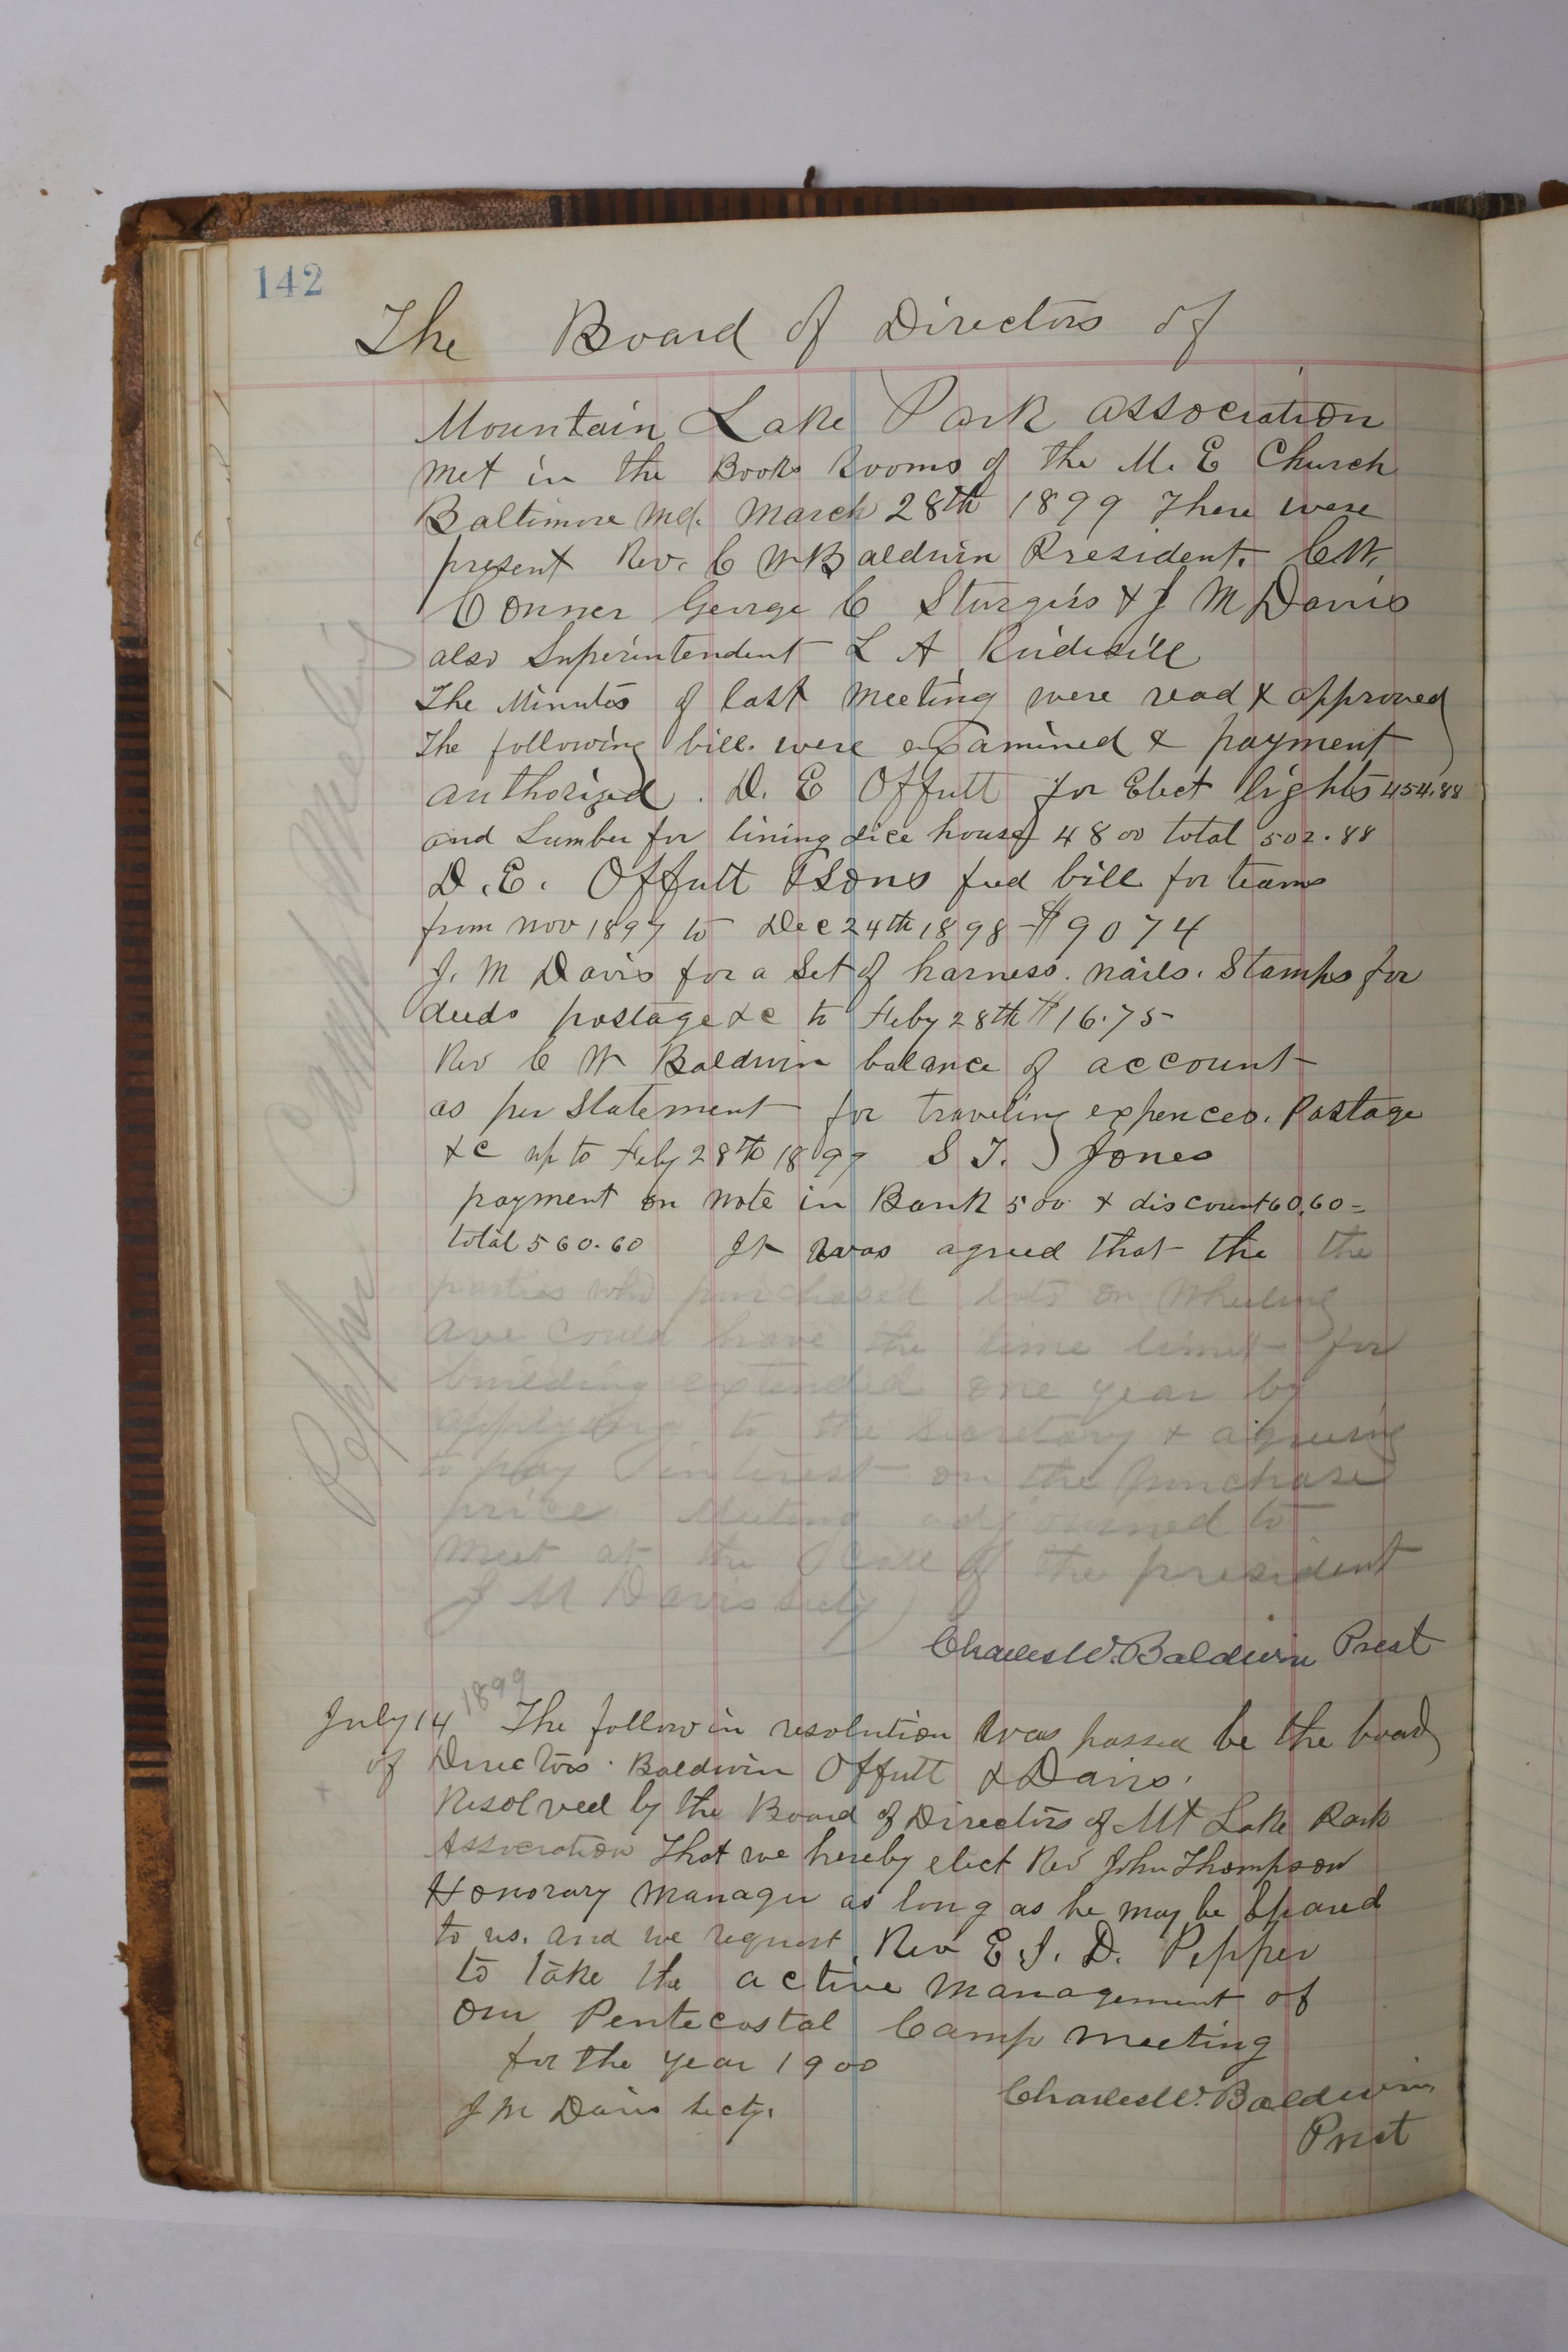 142
The Board of Directors of
Mountain Lake Park Association
met in the Book Rooms of the M. E Church
Baltimore Md. March 28th 1899 There were
present Rev. C W Baldwin President. C W.
Conner George C Sturgiss & J M Davis
also Superintendent L A Rudisill
The Minutes of last meeting were read & approved
The following bill. were examined & payment
authorized. D. E Offutt for Elect lights 454.88
and Lumber for lining ice house 48 00 total 502.88
D. E. Offutt & Sons feed bill for teams
from Nov 1897 to Dec 24th 1898 $90 74
J. M Davis for a Set of harness. nails. Stamps for
deeds postage &c to Feby 28th $16.75
Rev C W Baldwin balance of account
as per Statement for traveling expences. Postage
&c up to Feby 28th 1899 S T. Jones
payment on note in Bank 500 & discount 60.60 =
total 560.60 It was agreed that the the
parties who purchased lots on Wheeling
ave could have the time limit for
building extended one year by
applying to the Secretary & agreeing
to pay interest on the purchase
price Meeting adjourned to
meet at the Call of the president
J M Davis Secty
Charles W. Baldwin Prest
1899
July 14 The followin resolution was passed be the board
of Directors. Baldwin Offutt & Davis.
Resolved by the Board of Directors of Mt Lake Park
Association That we hereby elect Rev John Thompson
Honorary Manager as long as he may be Spared
to us. and we request Rev E. I. D. Pepper
to take the active management of
our Pentecostal Camp Meeting
for the year 1900
J M Davis Secty.
Charles W. Baldwin
Prest
Pepper Camp Meeting